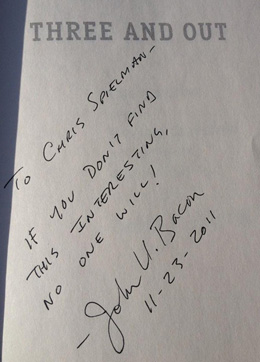 THREE AND OUT
TO CHRIS SPIELMAN-
IF YOU DON'T FIND
THIS INTERESTING,
NO ONE WILL!
- John U. Bacon
11-23-2011